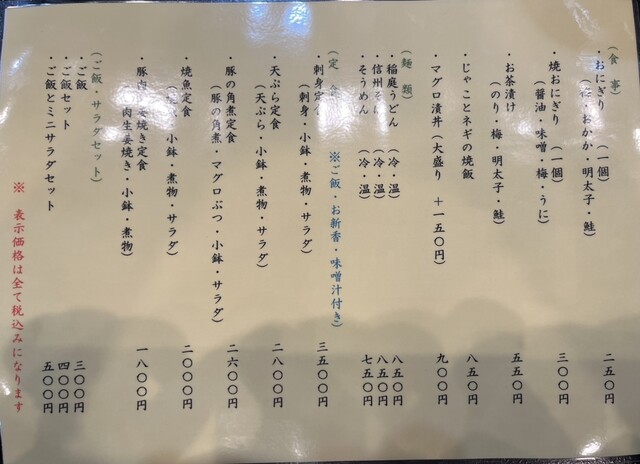 (食事)
・おにぎり (一個) 二五〇円
(梅・おかか・明太子・鮭)
・焼おにぎり (一個) 三〇〇円
(醤油・味噌・梅・うに)
・お茶漬け 五五〇円
(のり・梅・明太子・鮭)
・じゃことネギの焼飯 八五〇円
・マグロ漬丼(大盛り +一五〇円) 九〇〇円
(麺類)
・稲庭うどん (冷・温) 八五〇円
・信州そば (冷・温) 八五〇円
・そうめん (冷・温) 七五〇円
(定食) ※ご飯・お新香・味噌汁付き)
・刺身定食 三五〇〇円
(刺身・小鉢・煮物・サラダ)
・天ぷら定食 二八〇〇円
(天ぷら・小鉢・煮物・サラダ)
・豚の角煮定食 二六〇〇円
(豚の角煮・マグロぶつ・小鉢・サラダ)
・焼魚定食 二〇〇〇円
・小鉢・煮物・サラダ)
・豚肉生姜焼き定食 一八〇〇円
肉生姜焼き・小鉢・煮物)
(ご飯・サラダセット)
・ご飯 三〇〇円
・ご飯セット 四〇〇円
・ご飯とミニサラダセット 五〇〇円
※ 表示価格は全て税込みになります